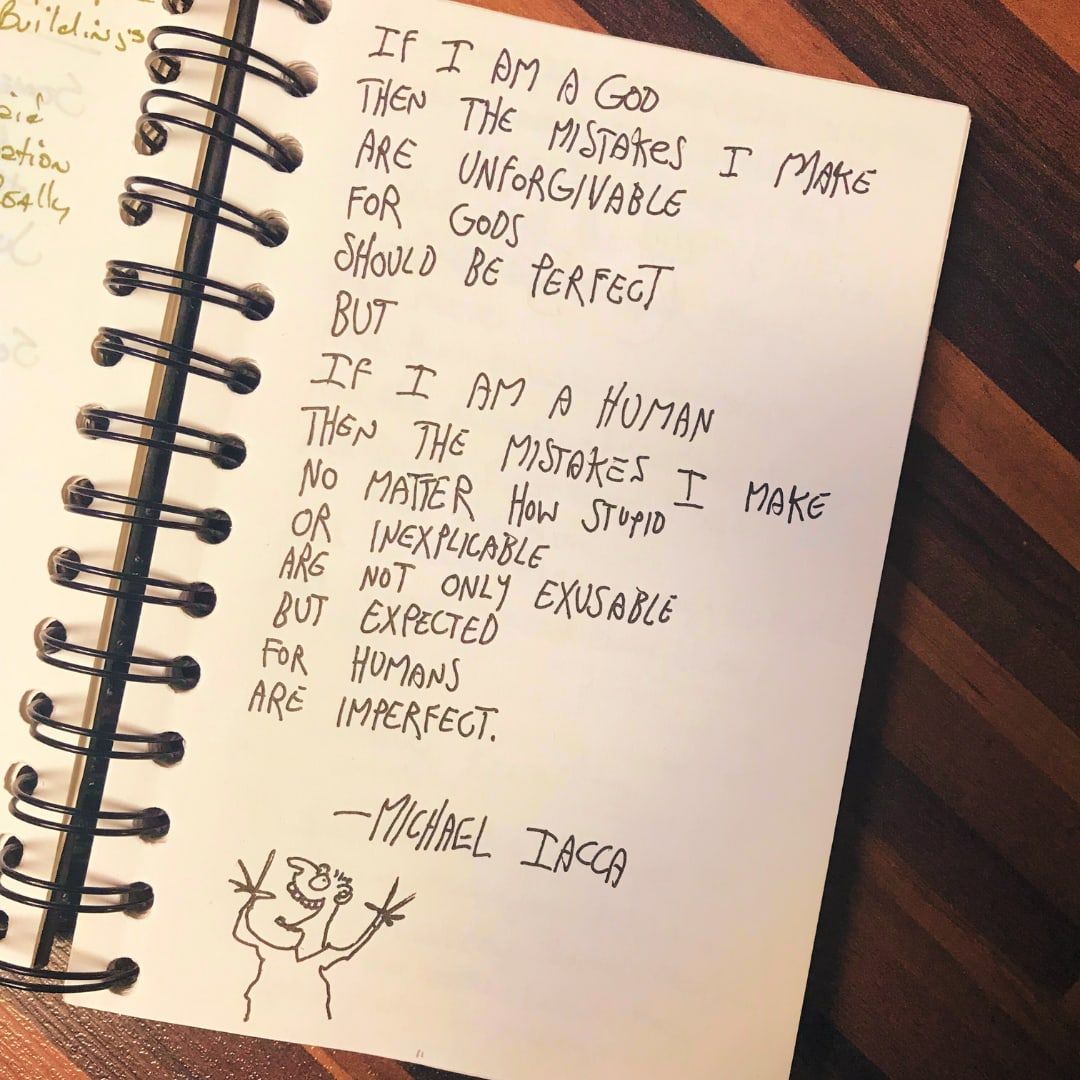 Buildings
ation
Really
IF I AM A GOD
THEN THE MISTAKES I MAKE
ARE UNFORGIVABLE
FOR GODS
SHOULD BE PERFECT
BUT
IF I AM A HUMAN
THEN THE MISTAKES I MAKE
NO MATTER HOW STUPID
OR INEXPLICABLE
ARE NOT ONLY EXUSABLE
BUT EXPECTED
FOR HUMANS
ARE IMPERFECT.
—MICHAEL IACCA